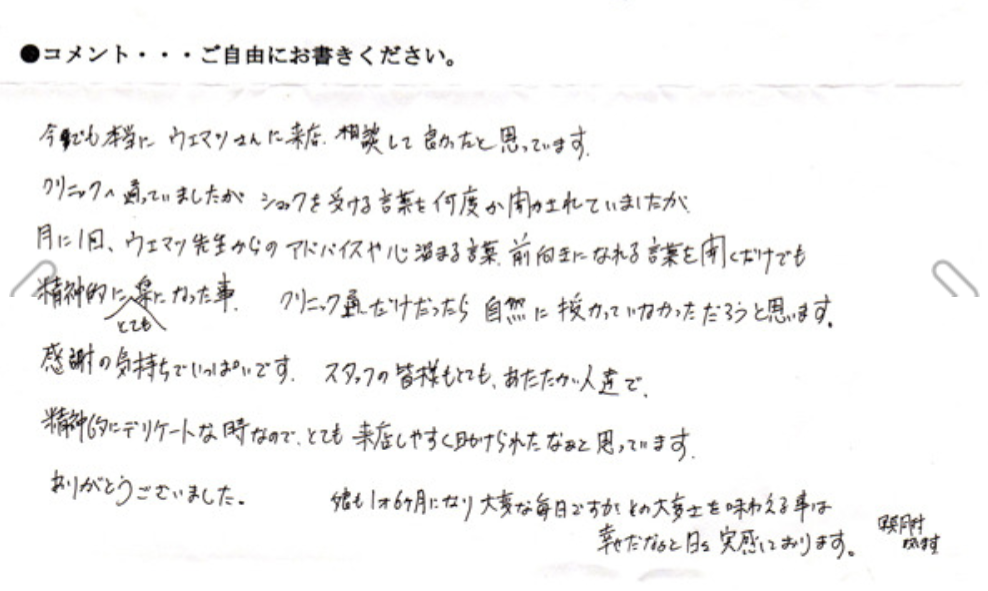 ●コメント・・・ご自由にお書きください。
今でも本当に ウエマツさんに来店、相談して良かったと思っています。
クリニックへ通っていましたが ショックを受ける言葉を何度か聞かされていましたが、
月に1回、ウエマツ先生からの アドバイスや心温まる言葉、前向きになれる言葉を聞くだけでも
精神的に楽になった事。 クリニック通いだけだったら 自然に授かっていなかっただろうと思います。
とても
感謝の気持ちでいっぱいです。 スタッフの皆様もとても、あたたかい人達で、
精神的にデリケートな時なので、とても 来店しやすく助けられたなぁと思っています。
ありがとうございました。 娘も1才6ヶ月になり 大変な毎日ですが、この大変さを味わえる事は
幸せだなぁと日々実感しております。